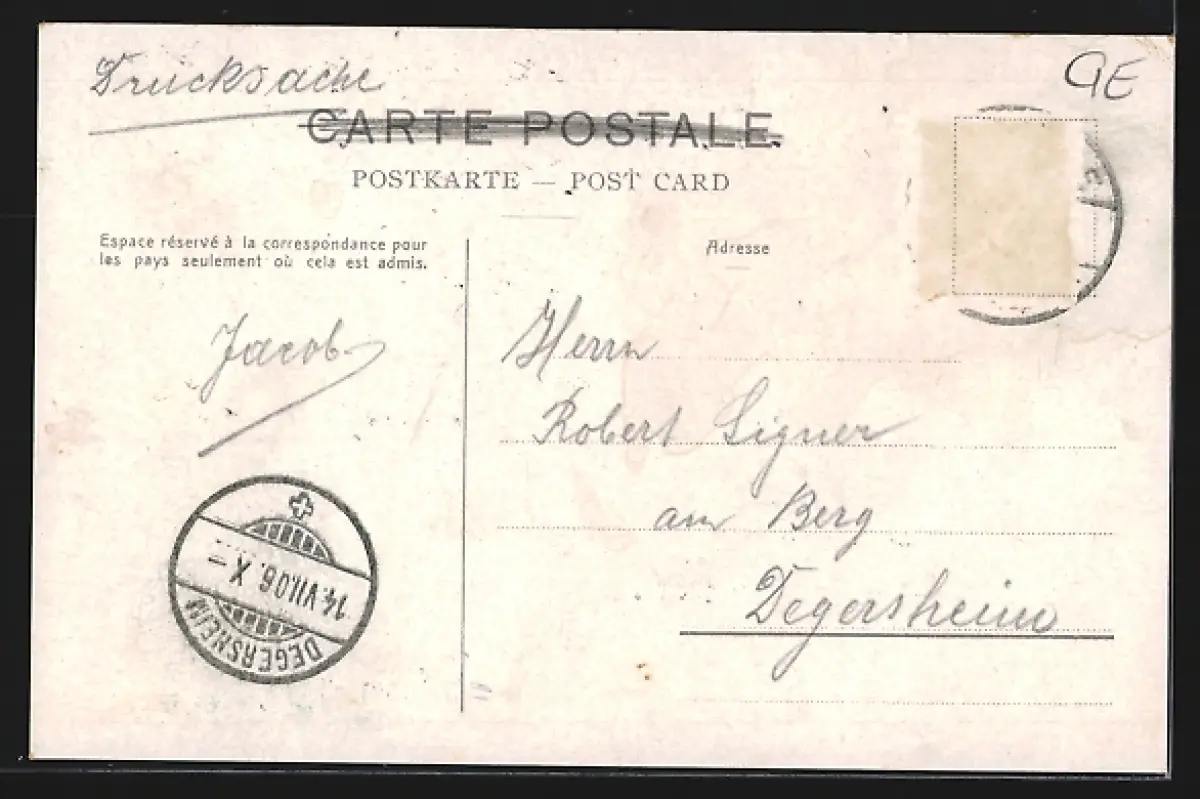 Drucksache
GE
CARTE POSTALE
POSTKARTE — POST CARD
Espace réservé à la correspondance pour
les pays seulement où cela est admis.
Adresse
Jacob
Herrn
Robert Signer
am Berg
Degersheim
14.VII.06.X–
DEGERSHEIM